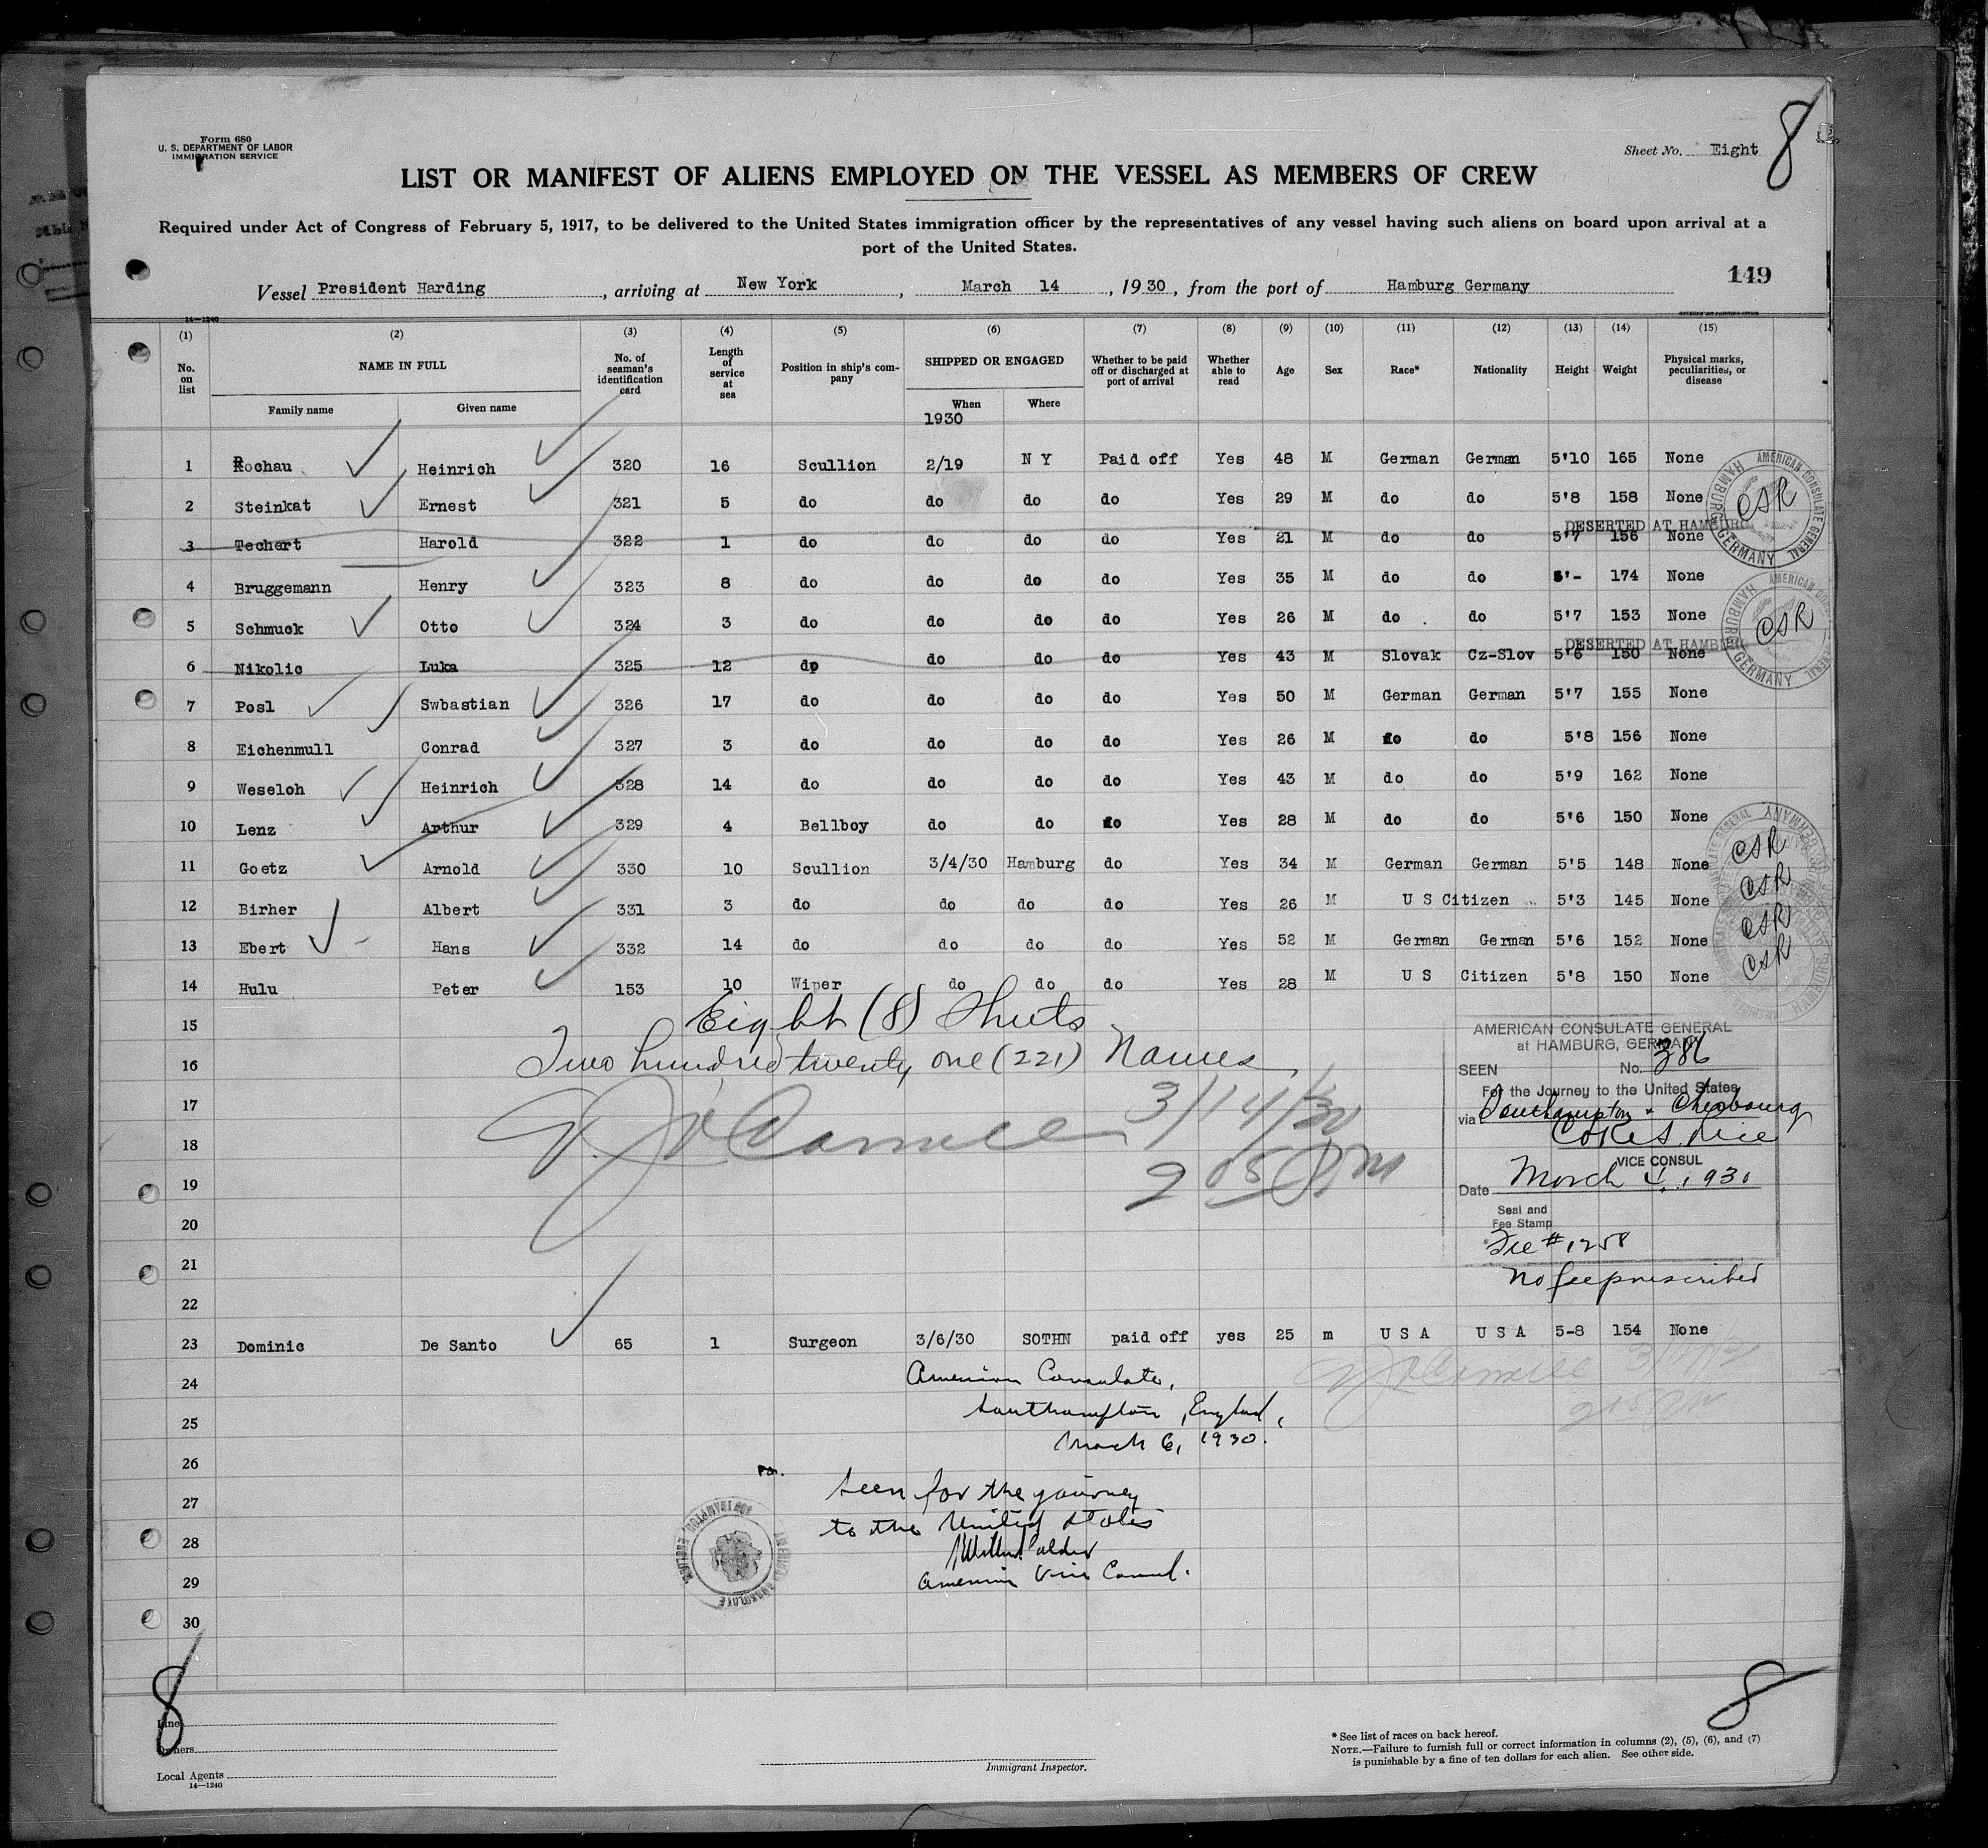 Form 680
U. S. DEPARTMENT OF LABOR
IMMIGRATION SERVICE
Sheet No. Eight
8
LIST OR MANIFEST OF ALIENS EMPLOYED ON THE VESSEL AS MEMBERS OF CREW
Required under Act of Congress of February 5, 1917, to be delivered to the United States immigration officer by the representatives of any vessel having such aliens on board upon arrival at a
port of the United States.
Vessel President Harding, arriving at New York, March 14, 1930, from the port of Hamburg Germany
149
14—1240
(1) (2) (3) (4) (5) (6) (7) (8) (9) (10) (11) (12) (13) (14) (15)
No. on list NAME IN FULL Family name Given name No. of seaman's identification card Length of service at sea Position in ship's company SHIPPED OR ENGAGED When Where Whether to be paid off or discharged at port of arrival Whether able to read Age Sex Race* Nationality Height Weight Physical marks, peculiarities, or disease
1930
1 Rochau Heinrich 320 16 Scullion 2/19 N Y Paid off Yes 48 M German German 5'10 165 None
2 Steinkat Ernest 321 5 do do do do Yes 29 M do do 5'8 158 None
DESERTED AT HAMBURG
3 Techert Harold 322 1 do do do do Yes 21 M do do 5'7 156 None
4 Bruggemann Henry 323 8 do do do do Yes 35 M do do 5'- 174 None
5 Schmuck Otto 324 3 do do do do Yes 26 M do do 5'7 153 None
DESERTED AT HAMBURG
6 Nikolic Luka 325 12 do do do do Yes 43 M Slovak Cz-Slov 5'6 150 None
7 Posl Swbastian 326 17 do do do do Yes 50 M German German 5'7 155 None
8 Eichenmull Conrad 327 3 do do do do Yes 26 M do do 5'8 156 None
9 Weseloh Heinrich 328 14 do do do do Yes 43 M do do 5'9 162 None
10 Lenz Arthur 329 4 Bellboy do do do Yes 28 M do do 5'6 150 None
11 Goetz Arnold 330 10 Scullion 3/4/30 Hamburg do Yes 34 M German German 5'5 148 None
12 Birher Albert 331 3 do do do do Yes 26 M U S Citizen 5'3 145 None
13 Ebert Hans 332 14 do do do do Yes 52 M German German 5'6 152 None
14 Hulu Peter 153 10 Wiper do do do Yes 28 M U S Citizen 5'8 150 None
AMERICAN CONSULATE GENERAL HAMBURG, GERMANY
CSR
AMERICAN CONSULATE GENERAL HAMBURG, GERMANY
CSR
CSR
CSR
CSR
CSR
15
Eight (8) Sheets
16
Two hundred twenty one (221) Names
17
3/14/30
18
19
2 05 PM
20
21
22
AMERICAN CONSULATE GENERAL
at HAMBURG, GERMANY
SEEN No. 386
For the Journey to the United States
via Southampton & Cherbourg
Coke S. Rice
VICE CONSUL
Date March 4, 1930
Seal and
Fee Stamp
Fee # 1258
No fee prescribed
23 Dominic De Santo 65 1 Surgeon 3/6/30 SOTHN paid off yes 25 m U S A U S A 5-8 154 None
24
American Consulate,
25
Southampton, England,
March 6, 1930.
26
Seen for the journey
27
to the United States
28
American Vice Consul.
29
30
AMERICAN CONSULATE SOUTHAMPTON, ENGLAND
8
8
Line
Owners
Local Agents
14—1240
Immigrant Inspector.
* See list of races on back hereof.
NOTE.—Failure to furnish full or correct information in columns (2), (5), (6), and (7)
is punishable by a fine of ten dollars for each alien. See other side.